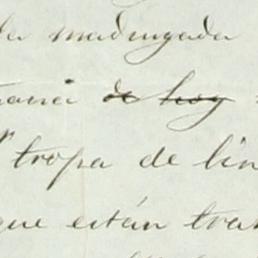 la madrugada
de hoy
tropa de lin
que están tra